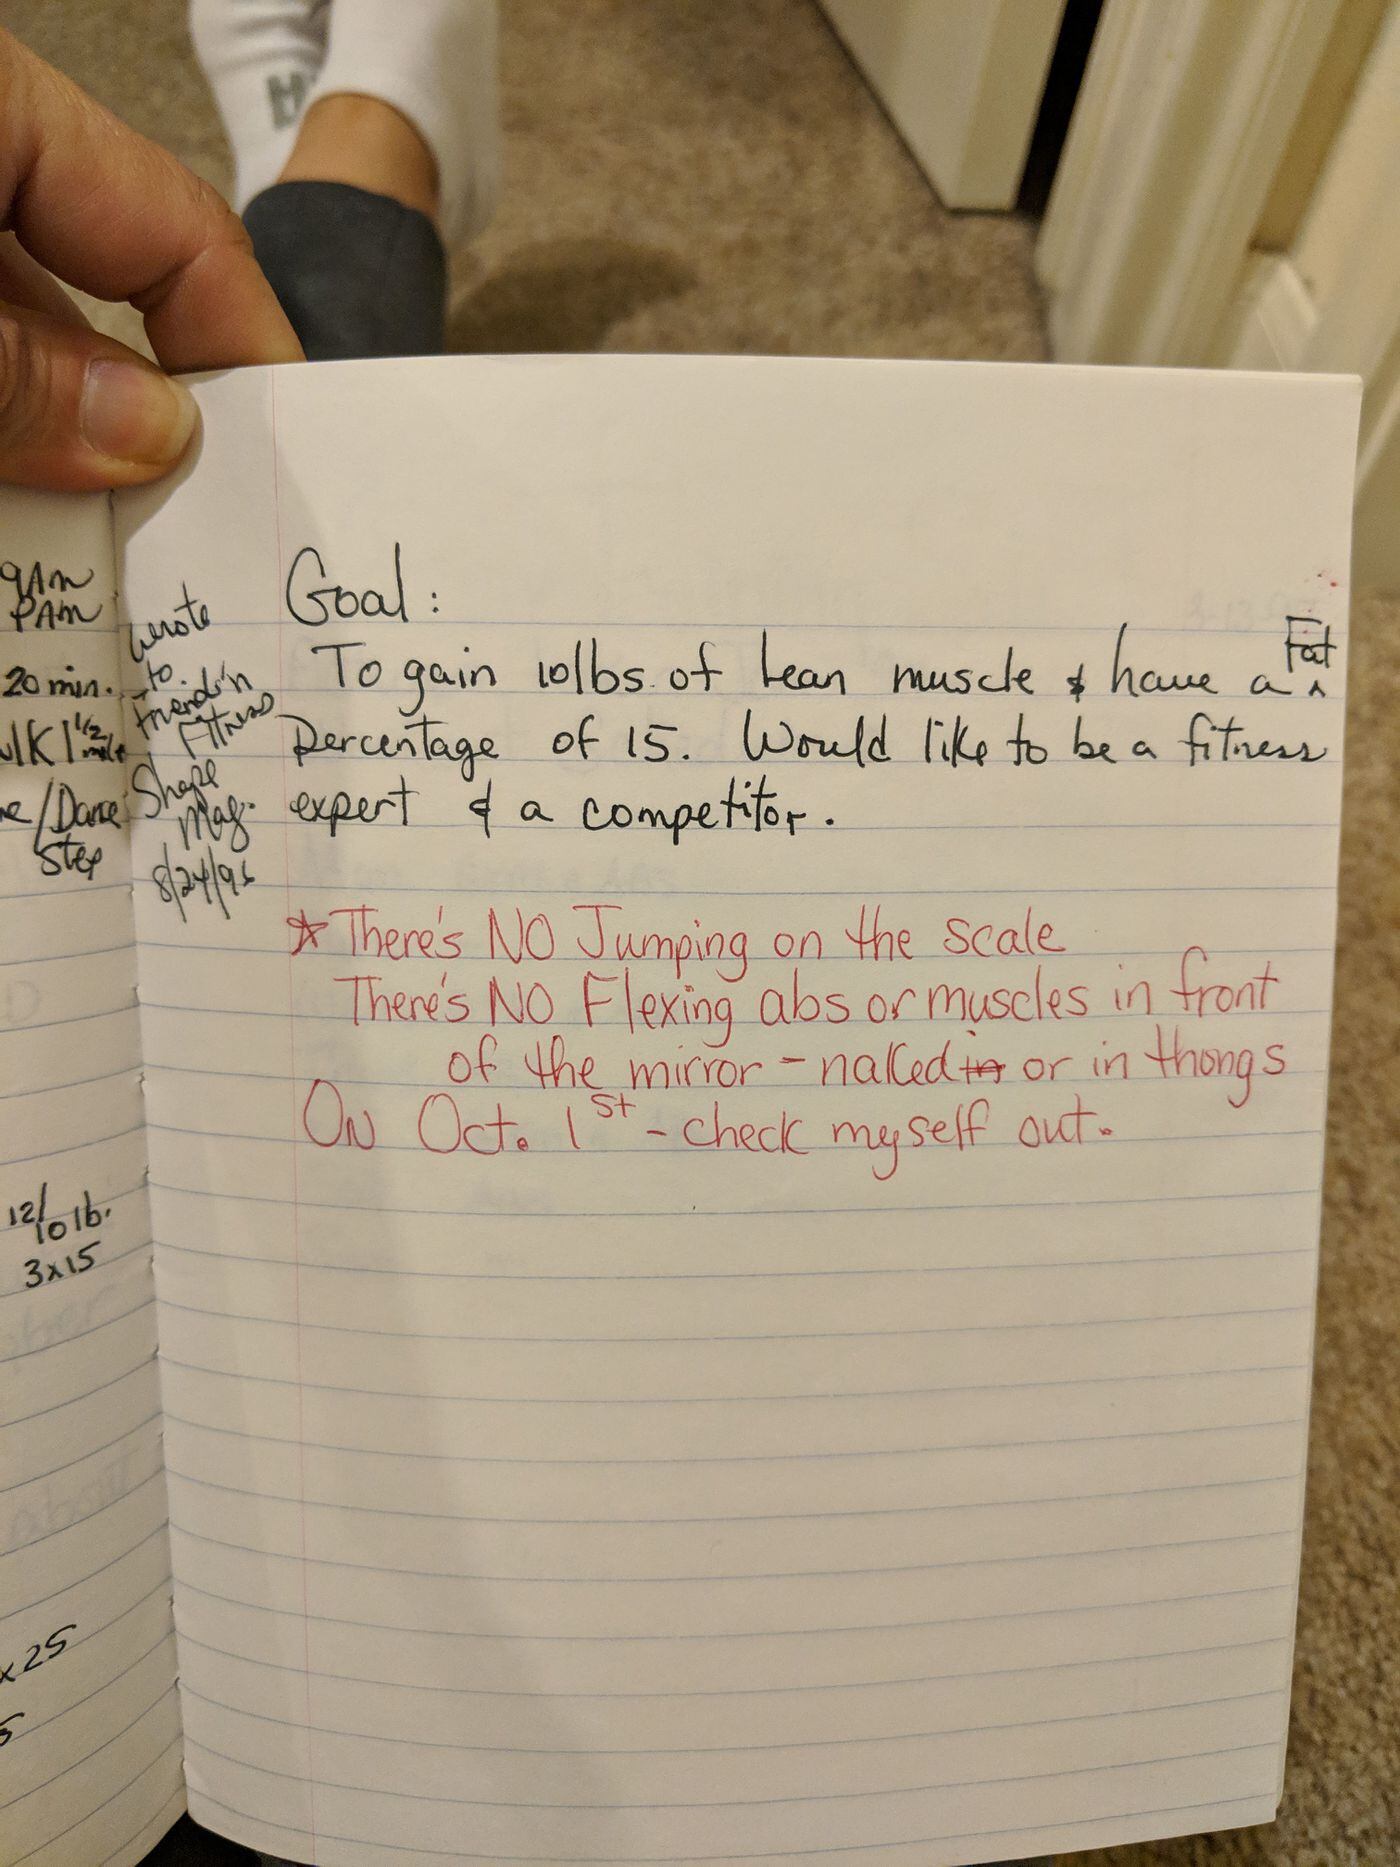 9Am
PAm
20 min.
1 1/2 mile
/Dance
Step
12/10 lb.
3x15
x25
5
wrote
to
Friend'n
Fitness
Shape
Mag.
8/24/96
Goal:
To gain 10lbs. of Lean muscle & have a Fat
percentage of 15. Would like to be a fitness
expert & a competitor.
* There's NO Jumping on the scale
There's NO Flexing abs or muscles in front
of the mirror - naked in or in thongs
ON Oct. 1st - check myself out.